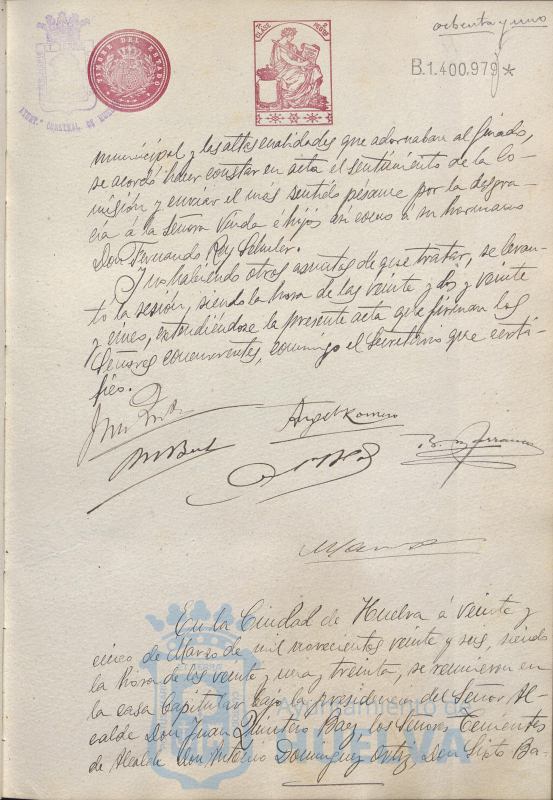 ochenta y uno
TIMBRE DEL ESTADO
B.1.400.979 *
municipal y las altas cualidades que adornaban al finado,
se acordó hacer constar en acta el sentimiento de la Co-
misión y enviar el más sentido pésame por la desgra-
cia á la Señora Viuda é hijos así como a su hermano
Don Fernando Rey
Y no habiendo otros asuntos de que tratar, se levan-
tó la sesión, siendo la hora de las veinte y dos y veinte
y cinco, extendiéndose la presente acta que firman los
Señores concurrentes, conmigo el Secretario que certi-
fico.
Angel Romero
En la Ciudad de Huelva á veinte y
cinco de Marzo de mil novecientos veinte y seis, siendo
la hora de las veinte y una y treinta, se reunieron en
la casa Capitular bajo la presidencia del Señor Al-
calde Don Juan Quintero Baez, los Señores Tenientes
de Alcalde Don Antonio Dominguez Ortiz, Don Sixto Ba-
Ayuntamiento de
HUELVA